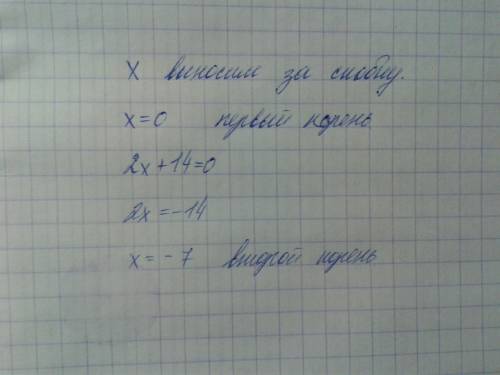 x выносим за скобку.
x=0 первый корень
2x+14=0
2x=-14
x=-7 второй корень